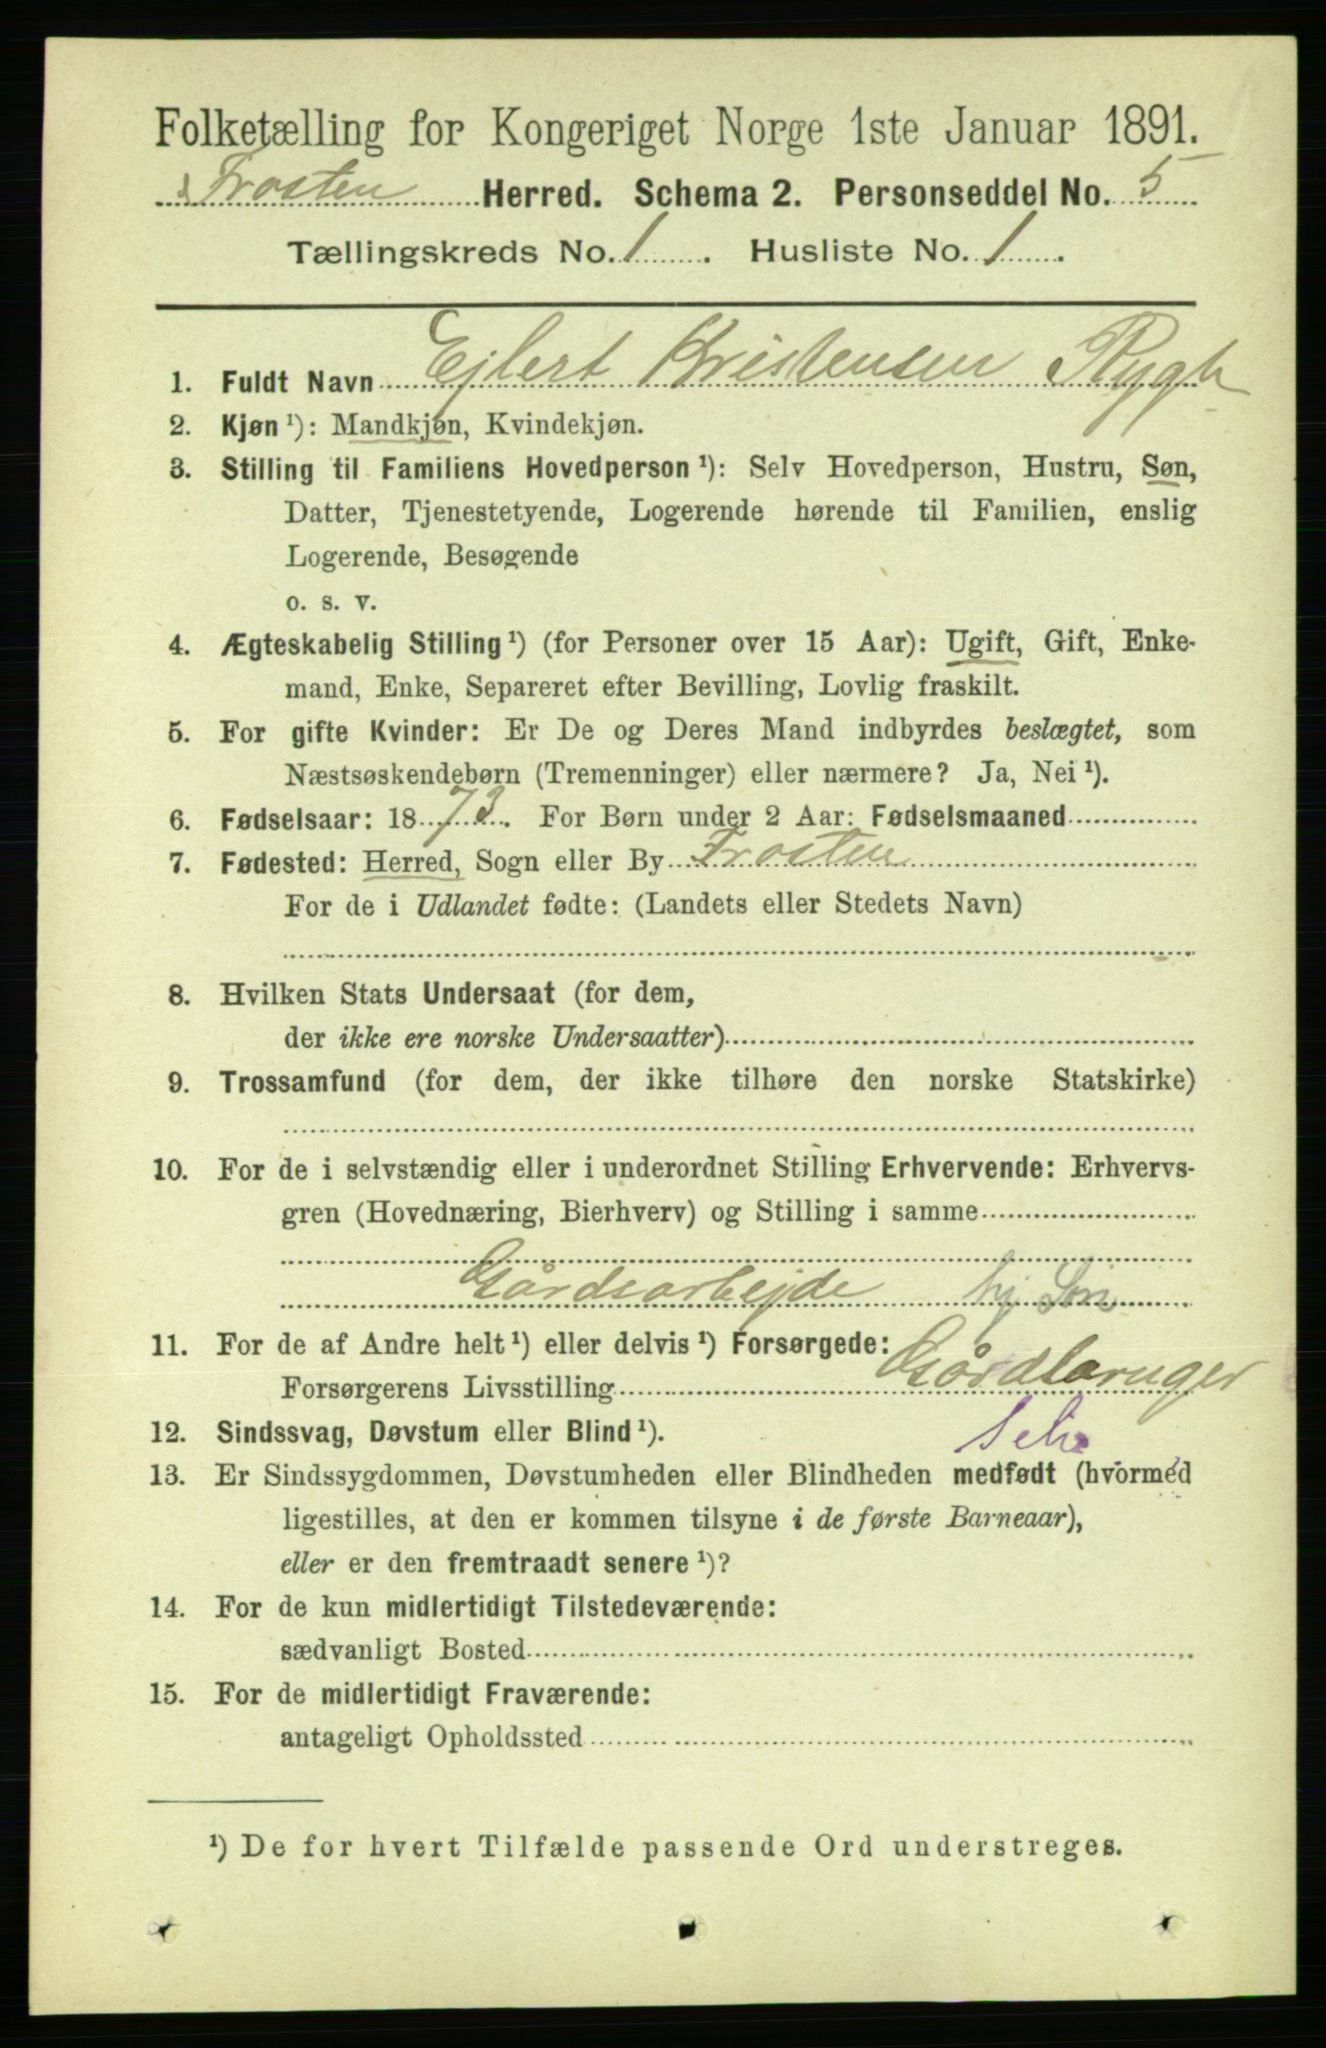 Folketælling for Kongeriget Norge 1ste Januar 1891.
Frosten Herred. Schema 2. Personseddel No. 5
Tællingskreds No. 1. Husliste No. 1.
1. Fuldt Navn Ejlert Kristensen Rygh
2. Kjøn ¹): Mandkjøn, Kvindekjøn.
3. Stilling til Familiens Hovedperson ¹): Selv Hovedperson, Hustru, Søn,
Datter, Tjenestetyende, Logerende hørende til Familien, enslig
Logerende, Besøgende
o. s. v.
4. Ægteskabelig Stilling ¹) (for Personer over 15 Aar): Ugift, Gift, Enke-
mand, Enke, Separeret efter Bevilling, Lovlig fraskilt.
5. For gifte Kvinder: Er De og Deres Mand indbyrdes beslægtet, som
Næstsøskendebørn (Tremenninger) eller nærmere? Ja, Nei ¹).
6. Fødselsaar: 1873. For Børn under 2 Aar: Fødselsmaaned
7. Fødested: Herred, Sogn eller By Frosten
For de i Udlandet fødte: (Landets eller Stedets Navn)
8. Hvilken Stats Undersaat (for dem,
der ikke ere norske Undersaatter)
9. Trossamfund (for dem, der ikke tilhøre den norske Statskirke)
10. For de i selvstændig eller i underordnet Stilling Erhvervende: Erhvervs-
gren (Hovednæring, Bierhverv) og Stilling i samme
Gårdsarbejde hj Søn
11. For de af Andre helt ¹) eller delvis ¹) Forsørgede:
Forsørgerens Livsstilling Gårdbruger
12. Sindssvag, Døvstum eller Blind ¹). Selv
13. Er Sindssygdommen, Døvstumheden eller Blindheden medfødt (hvormed
ligestilles, at den er kommen tilsyne i de første Barneaar),
eller er den fremtraadt senere ¹)?
14. For de kun midlertidigt Tilstedeværende:
sædvanligt Bosted
15. For de midlertidigt Fraværende:
antageligt Opholdssted
¹) De for hvert Tilfælde passende Ord understreges.